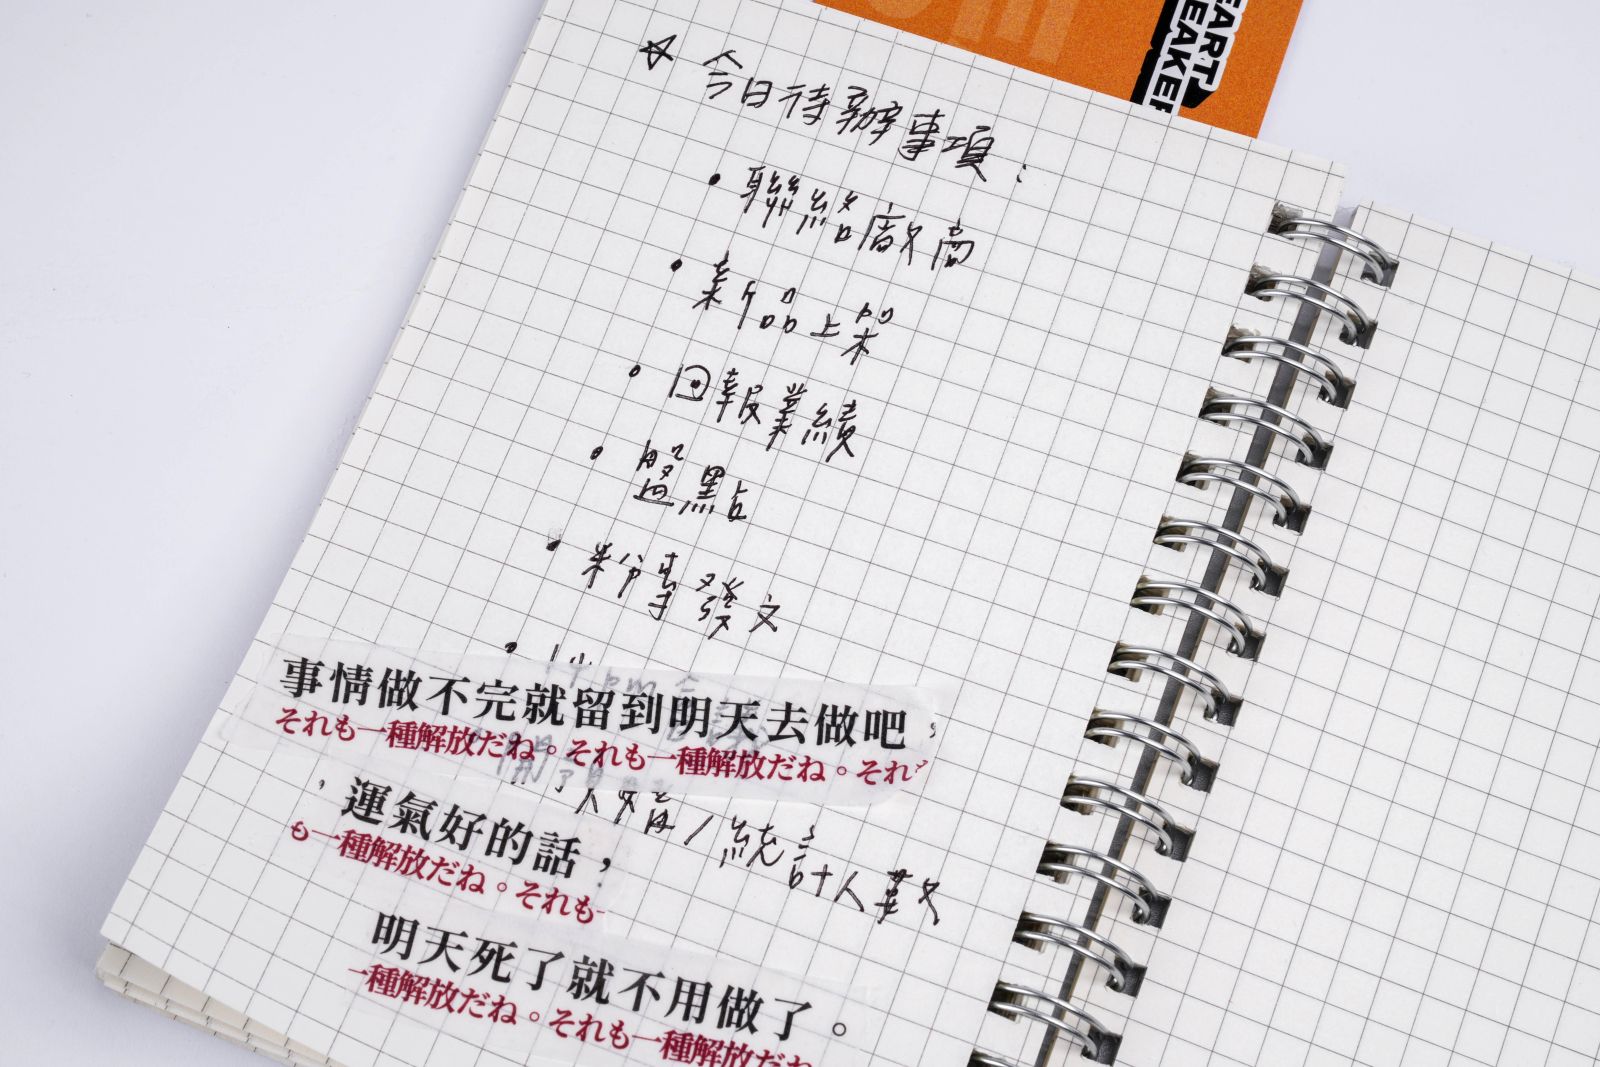 EART
EAKER
☆ 今日待辦事項：
• 聯絡廠商
• 新品上架
• 回報業績
• 盤點
• 粉專發文
事情做不完就留到明天去做吧，
それも一種解放だね。それも一種解放だね。それ
/統計人數
，運氣好的話，
も一種解放だね。それも一
明天死了就不用做了。
一種解放だね。それも一種解放だね